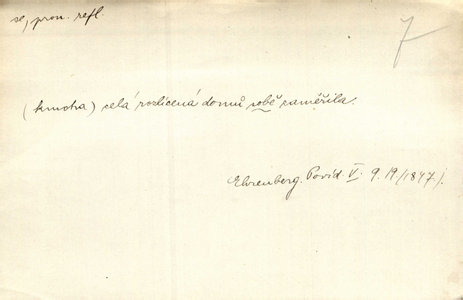 se, pron. refl.
7
(kmotra) celá rozlícená domů sobě zaměřila.
Ehrenberg. Povíd. V. 9. 19 /1847/.